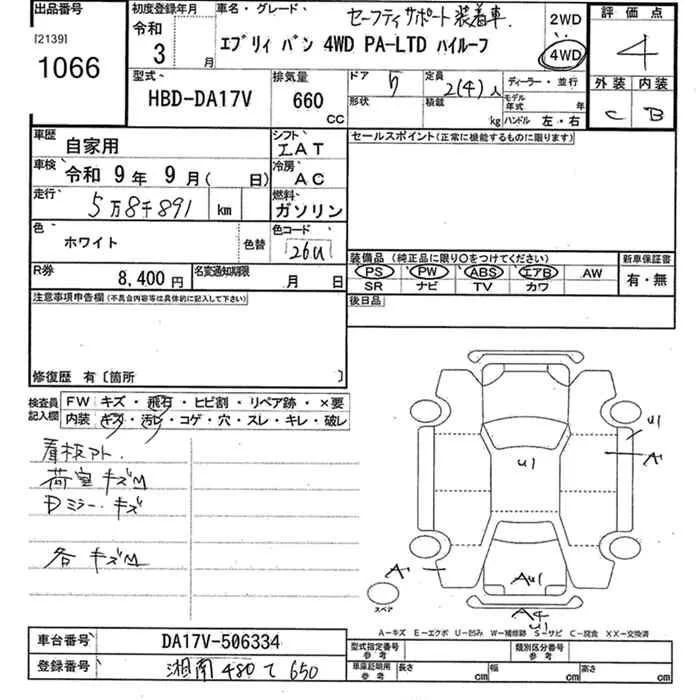 出品番号
[2139]
1066
初度登録年月
令和
3 月
車名・グレード
セーフティサポート装着車
エブリィ バン 4WD PA-LTD ハイルーフ
2WD
4WD
評価点
4
外装 内装
C B
型式
HBD-DA17V
排気量
660
CC
ドア 5
形状
定員
2(4)人
積載
kg
ディーラー・並行
モデル年式 年
ハンドル 左・右
車歴
自家用
車検
令和 9 年 9 月( 日)
走行
5万8千891 km
色
ホワイト
色替
シフト
IAT
冷房
AC
燃料
ガソリン
色コード
26U
R券
8,400円
名変通知期限
月 日
セールスポイント(正常に機能するものに限ります)
装備品 (純正品に限り〇をつけてください)
PS PW ABS エアB AW
SR ナビ TV カワ
新車保証書
有・無
後日品
注意事項申告欄(不具合内容等は具体的に記入して下さい)
修復歴 有〔箇所 〕
検査員記入欄
FW キズ・飛石・ヒビ割・リペア跡・×要
内装 キズ・汚レ・コゲ・穴・スレ・キレ・破レ
看板アト.
荷室 キズM
Dミラー・キズ
各 キズM
U1
U1
A
A
AU1
A4
U1
スペア
A-キズ E-エクボ U-凹み W-補修跡 S-サビ C-腐食 XX-交換済
車台番号
DA17V-506334
登録番号
湘南 480 て 650
型式指定番号
参考
類別区分番号
参考
車庫証明用
参考
長さ cm
幅 cm
高さ cm